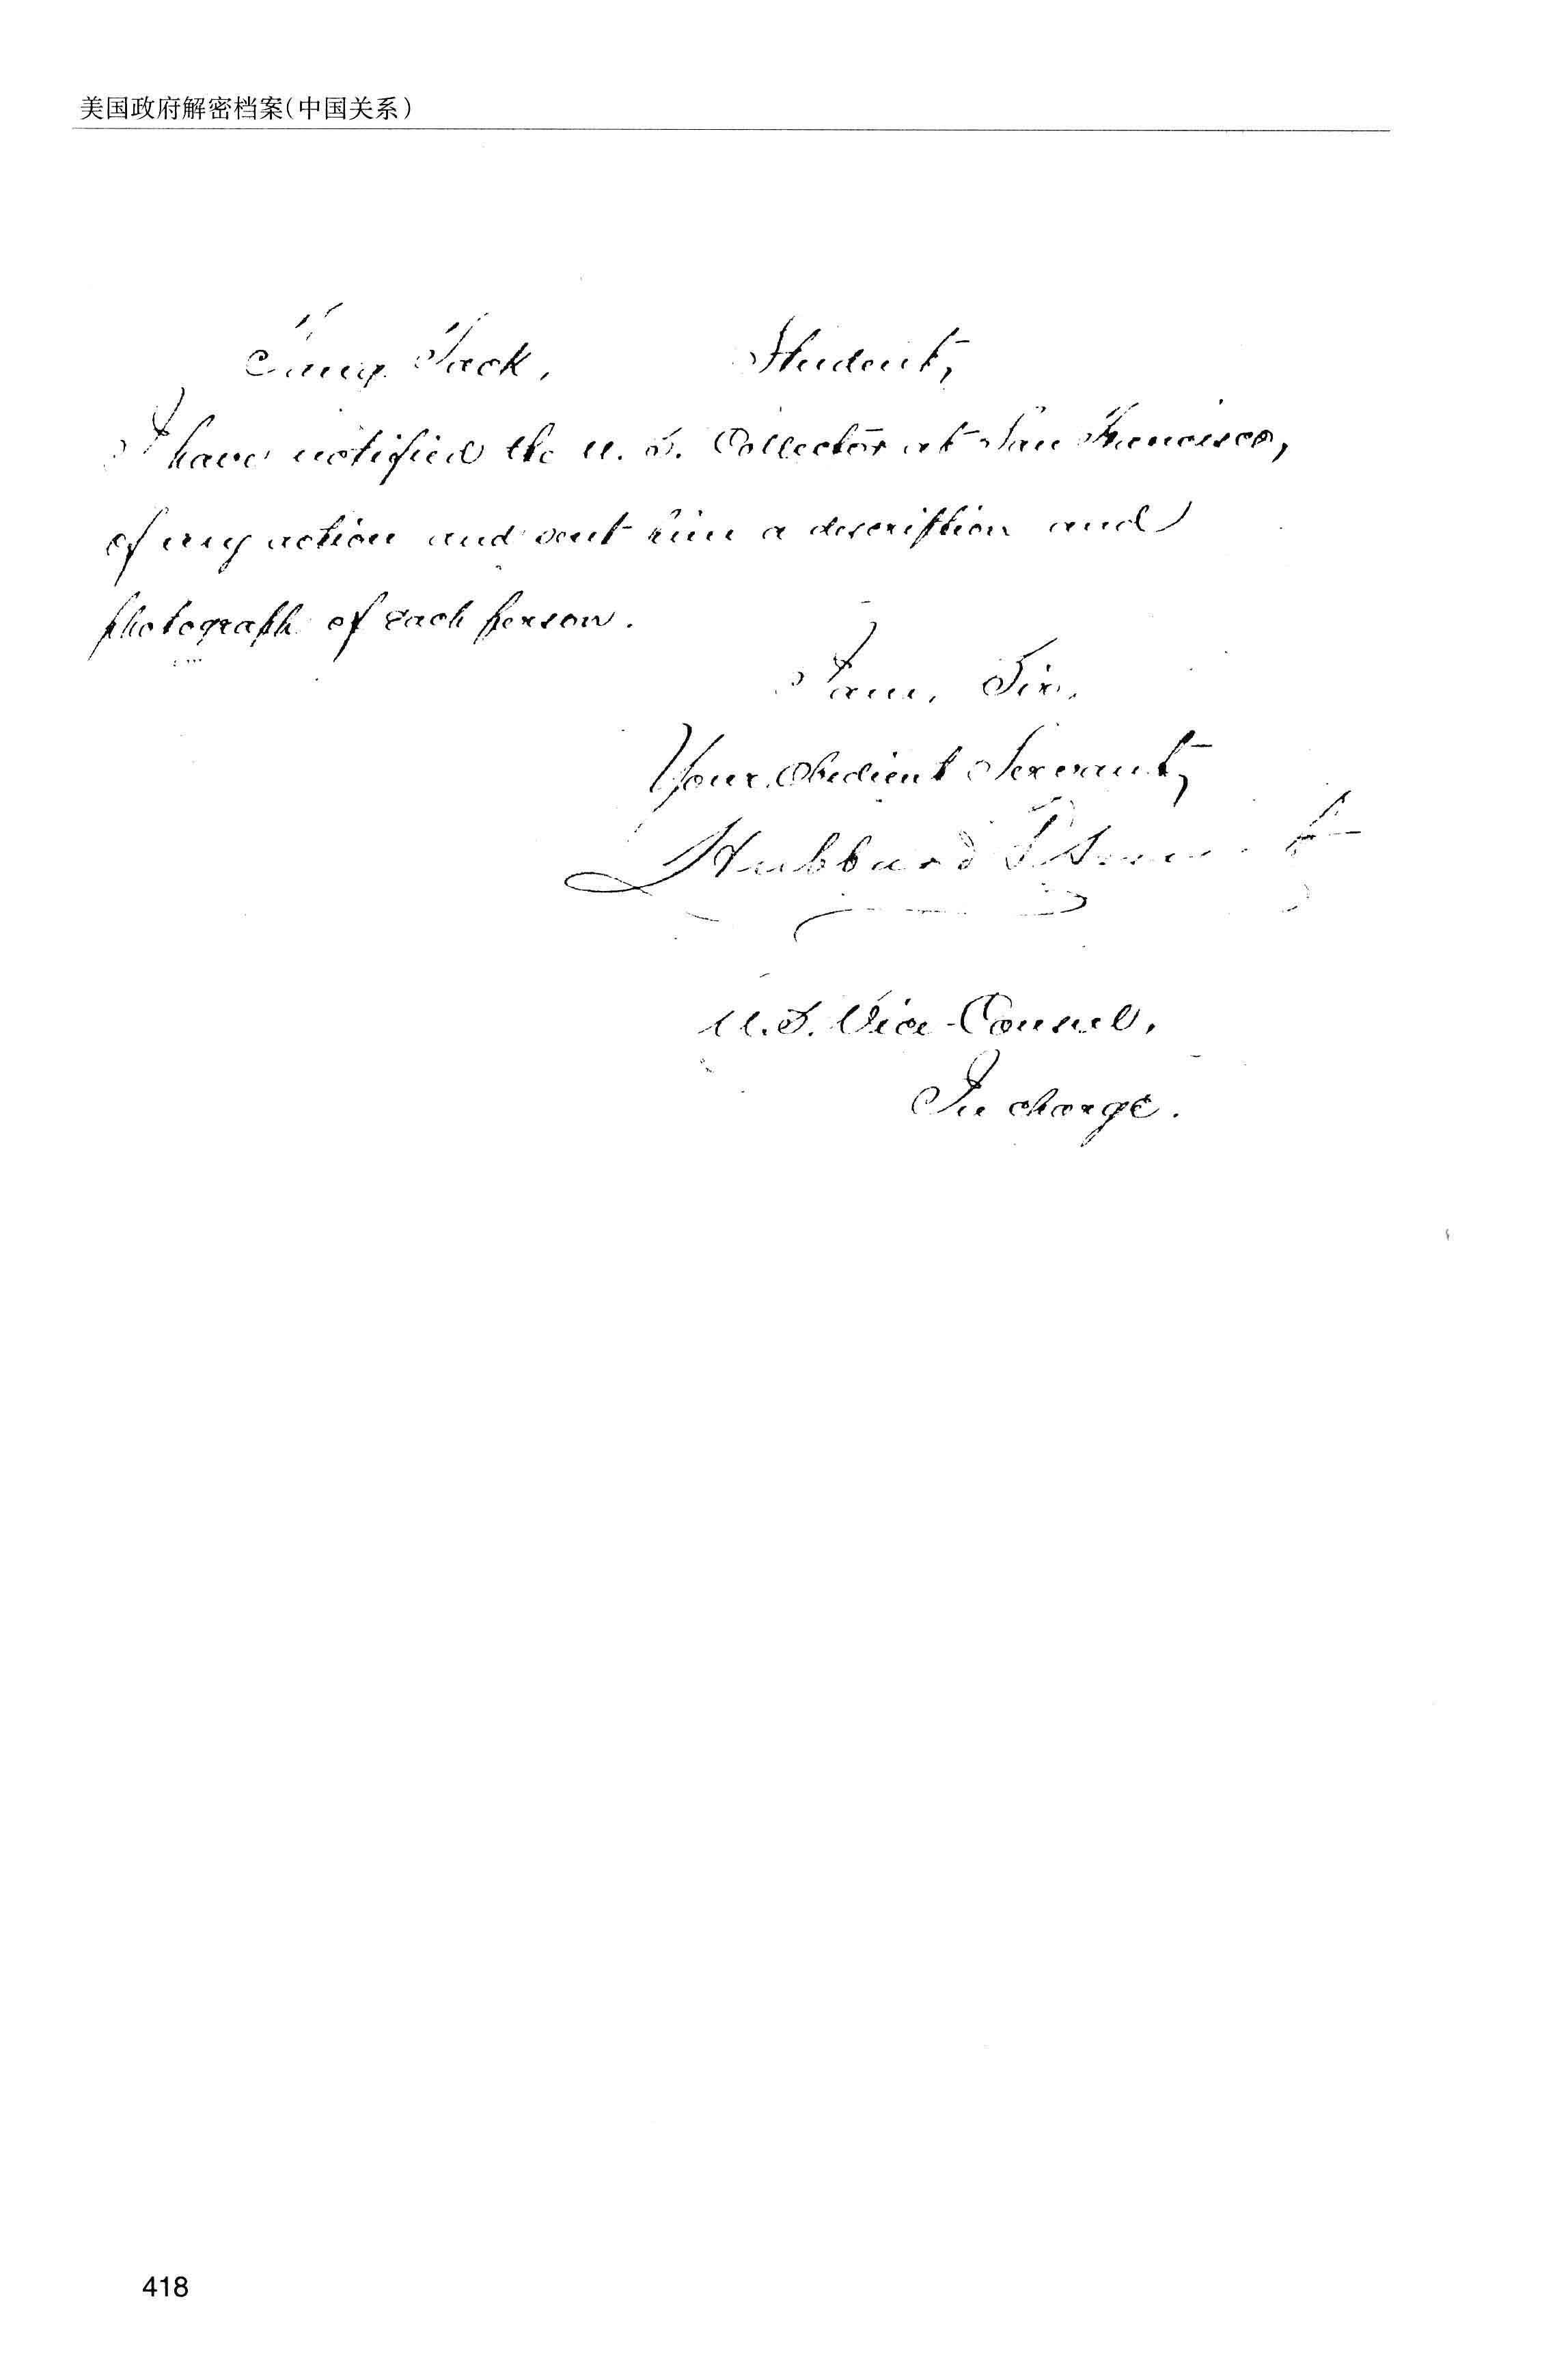 美国政府解密档案(中国关系)
Tack, Student,
I have notified the U. S. Collector at San Francisco,
of my action and sent him a description and
photograph of each person.
I am, Sir,
Your Obedient Servant,
Hubbard T. Smith
U.S. Vice-Consul,
In charge.
418